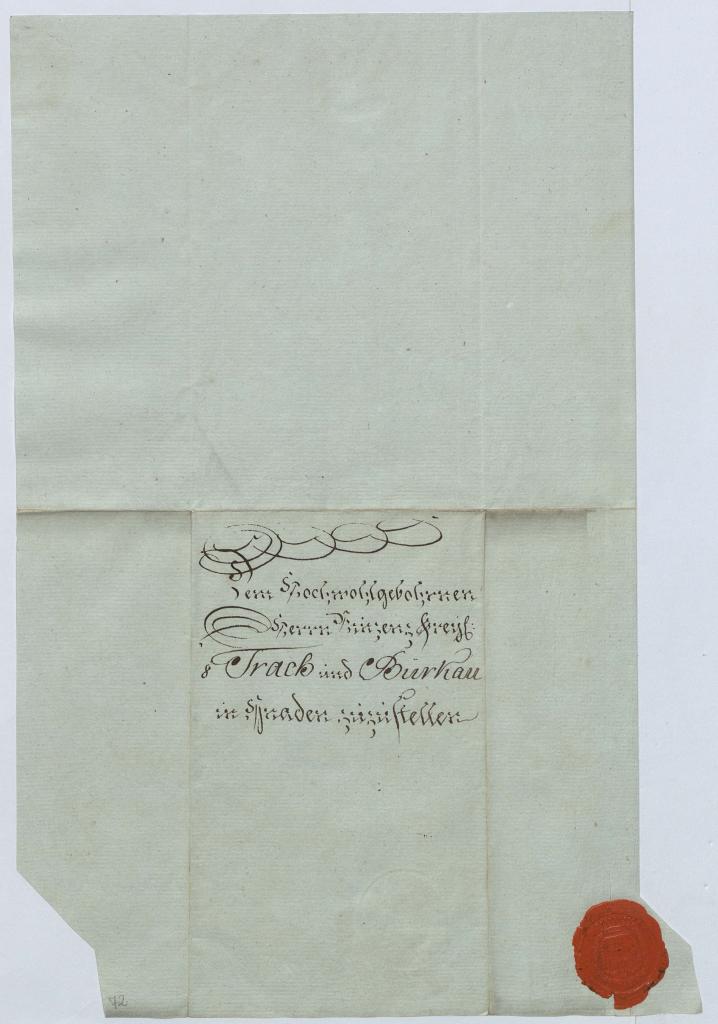 Dem Hochwohlgebohrnen
Herrn Vinzenz Freyh:
Track und Bürkau
in Gnaden zuzustellen
72